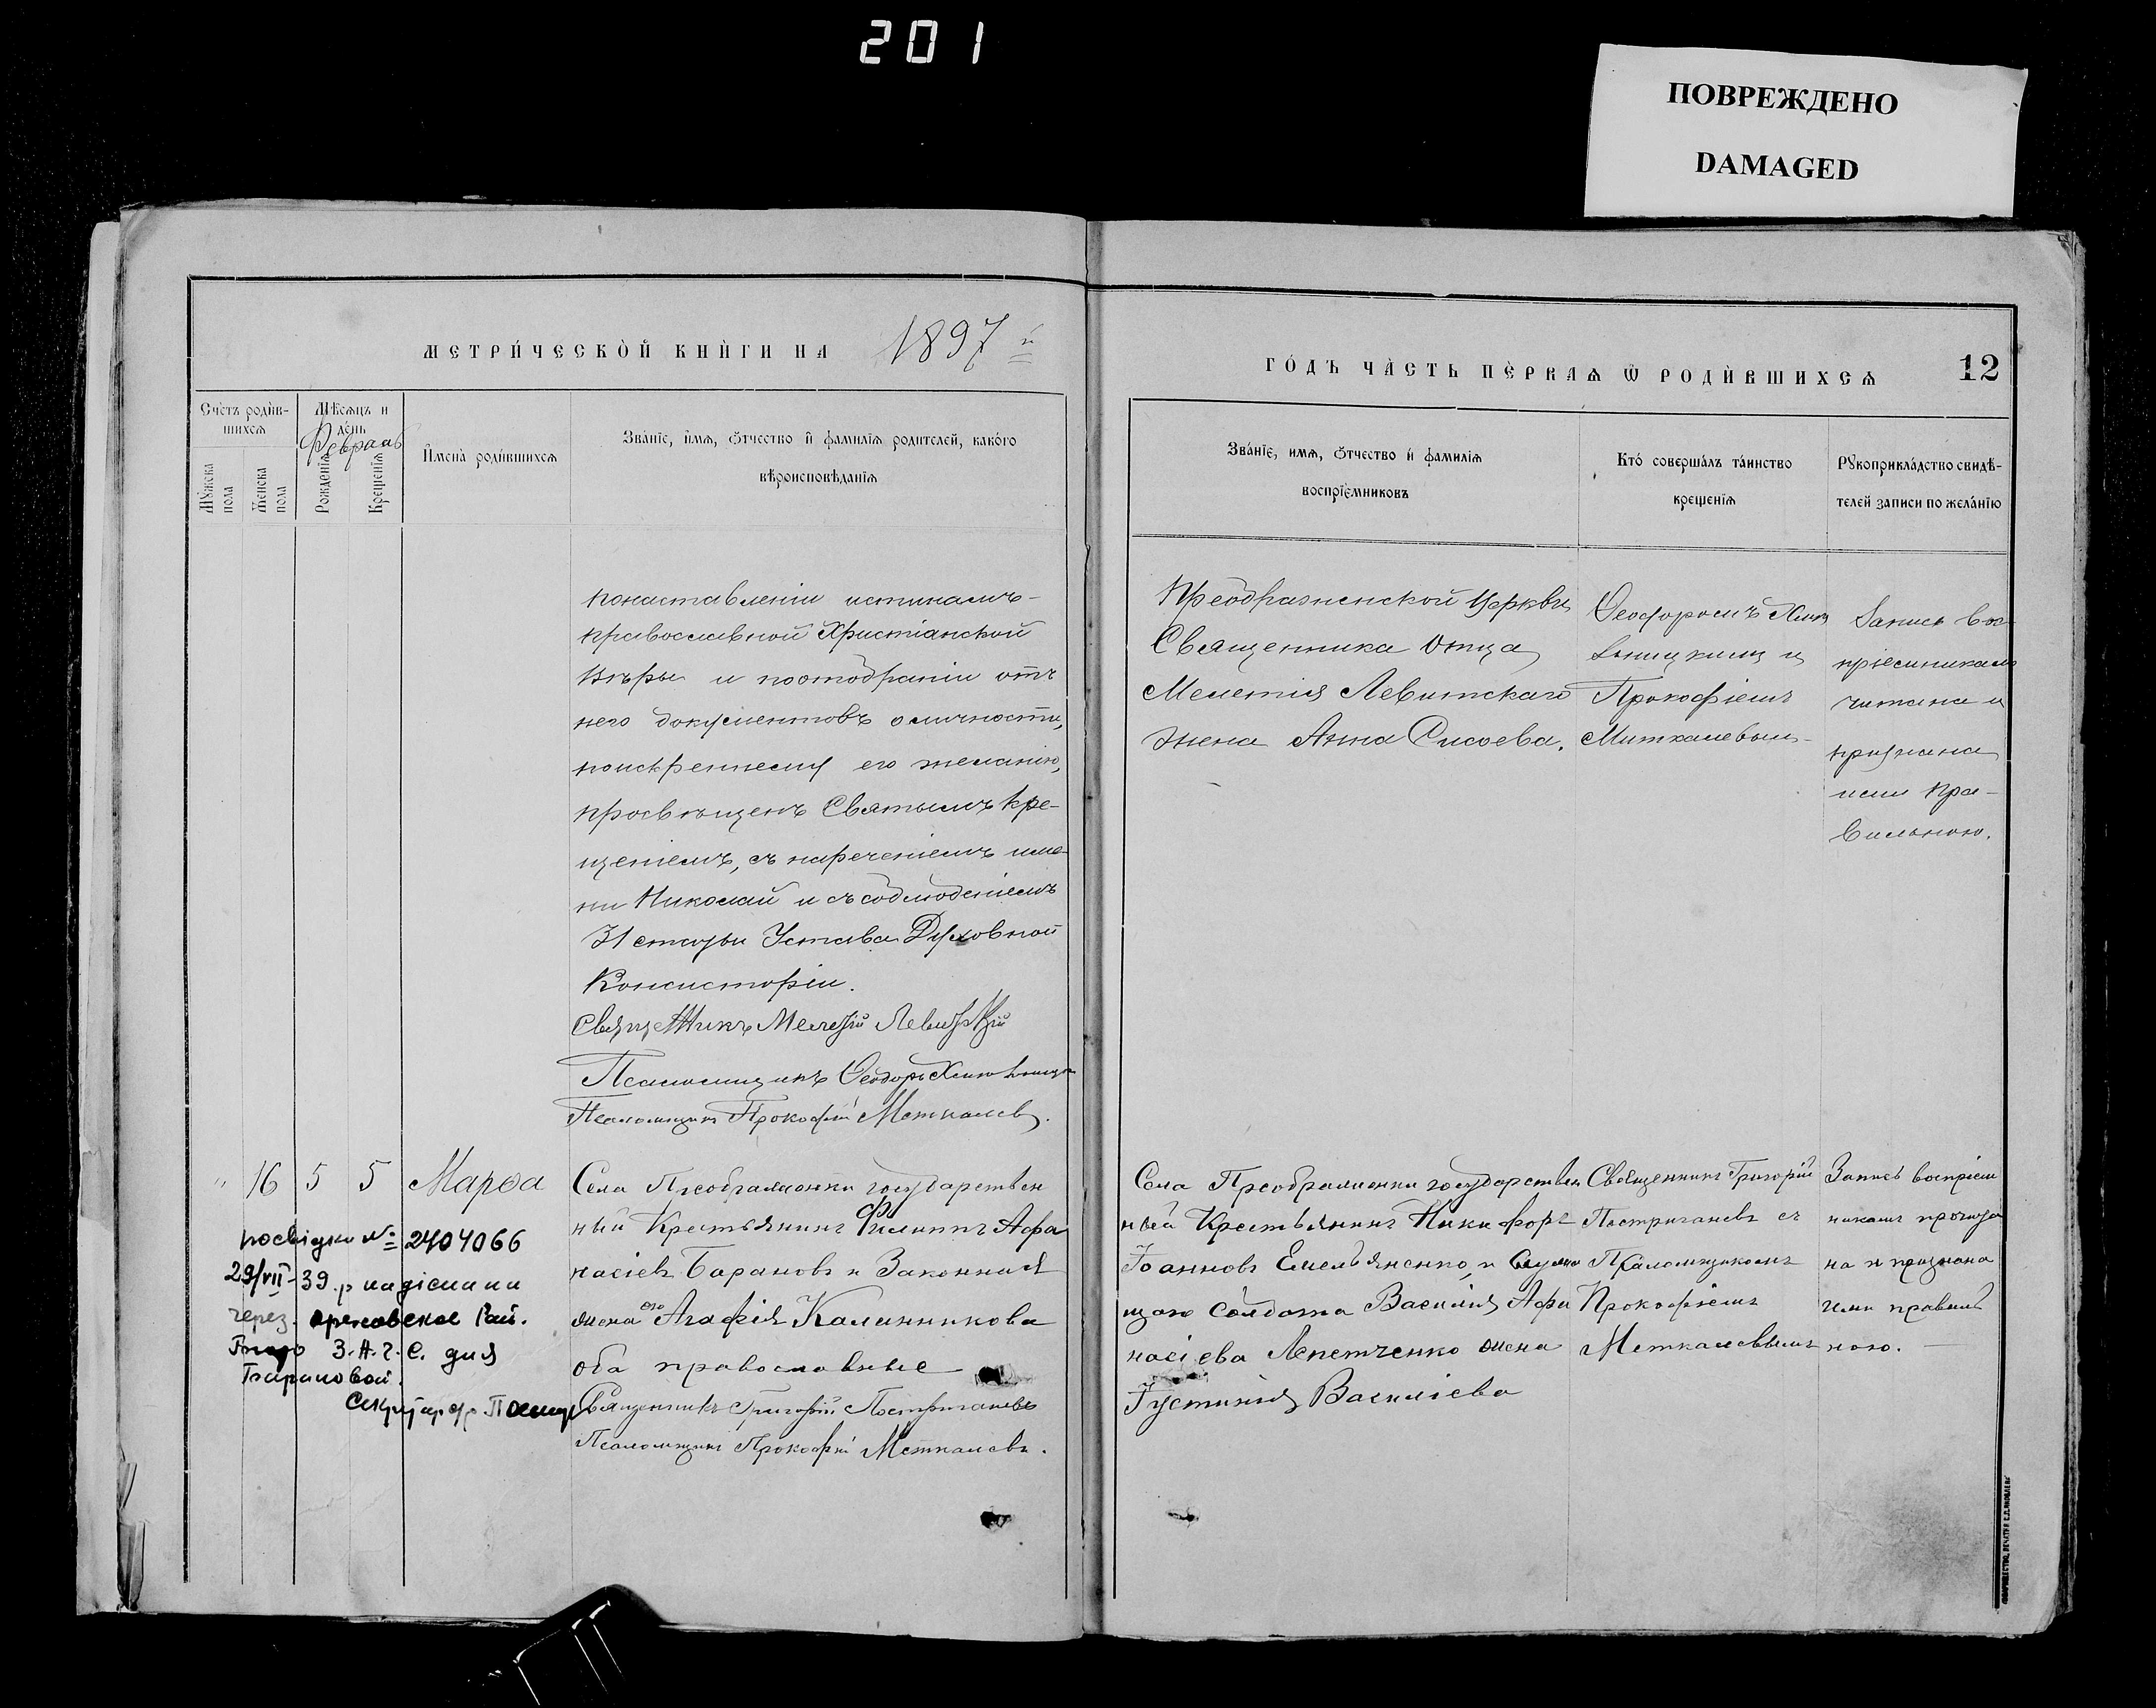 201
ПОВРЕЖДЕНО
DAMAGED
МЕТРИ́ЧЕСКОЙ КНИ́ГИ НА 1897й
ГО́ДЪ ЧА́СТЬ ПЕ́РВАѦ Ѡ РОДИ́ВШИХСѦ
12
Сче́тъ роди́в-
шихсѧ
Мѣ́сѧцъ и
де́нь
Февраль
Мꙋ́жска пола
Же́нска пола
Рожденїѧ
Крещенїѧ
И҆мена̀ роди́вшихсѧ
Зва́нїе, и҆мѧ, ѻ҆́тчество и҆ фамилїѧ родителей, како́го
вѣроисповѣданїѧ
Зва́нїе, имѧ, ѻ҆́тчество и҆ фамилїѧ
воспрїе́мниковъ
Кто́ соверша́лъ та́инство
крещенїѧ
Рꙋкоприкла́дство свидѣ́-
телей записи по жела́нїю
понаставленіи истинамъ-
православной Христіанской
Вѣры и поотобраніи отъ
него документовъ оличности,
поискреннему его желанію,
просвѣщенъ Святымъ Кре-
щеніемъ, съ нареченіемъ име-
ни Николай и съ соблюденіемъ
31 статьи Устава Духовной
Консисторіи.
Священникъ Мелетій Левитскій
Псаломщикъ Ѳеодоръ
Псаломщикъ Прокофій Меткалевъ.
Преображенской Церкви
Священника Отца
Мелетія Левитскаго
жена Анна Сисоева.
Ѳеодоромъ
и
Прокофіемъ
Миткалевым-
Запись вос-
пріемникамъ
читана и
признана
ими пра-
вильною.
" 16 5 5 Марѳа
Села Преображенки государствен
ный Крестьянинъ Филиппъ Афа
насіевъ Барановъ и Законная
жена его Агафія Калинникова
оба православные
Священникъ Григорій Постригановъ
Псаломщикъ Прокофій Меткалевъ.
Села Преображенки государствен
ный Крестьянинъ Никифоръ
Іоанновъ Емельяненко, и
щаго Солдата Василія Афа
насіева Лепетченко жена
Іустинія Василіева
Священникъ Григорій
Постригановъ съ
Псаломщикомъ
Прокофіемъ
Меткалевымъ
Запись воспріем
никамъ прочита
на и признана
ими правиль
ною.
посвідка № 2404066
29/VII-39 р надіслана
через. Ореховское Рай.
Бюро З.А.Г.С. для
Барановой.